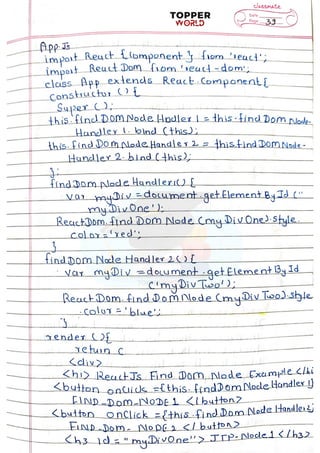 classmate
TOPPER
WORLD
Date
Page 39
App.Js
import React {Component} from 'react';
import React Dom from 'react-dom';
class App extends React.Component{
constructor () {
Super ();
this.findDOMNode Hadler 1 = this.find Dom Node-
Handler 1. bind (this);
this.find DOM Node Handler 2 = this.find DomNode-
Handler 2. bind (this);
};
findDom Node Handler1() {
Var myDiv = document.getElement By Id ("
myDivOne');
ReactDom.find Dom Node (myDivOne).style.
color = 'red';
}
findDOM Node Handler 2 () {
var myDiv = document.getElement By Id
('myDivTwo');
React Dom. find DomNode (myDivTwo).style
.color = 'blue';
}
render () {
return (
<div>
<h1> React Js Find Dom Node Example </h1
<button onClick = {this.findDomNode Handler 1}
FIND_DOM_NODE 1 </button>
<button onClick = {this.find Dom Node Handler2}
FIND_DOM_ NODE 2 </ button>
<h3 id = "myDivOne"> JTP-Node 1 </h3>